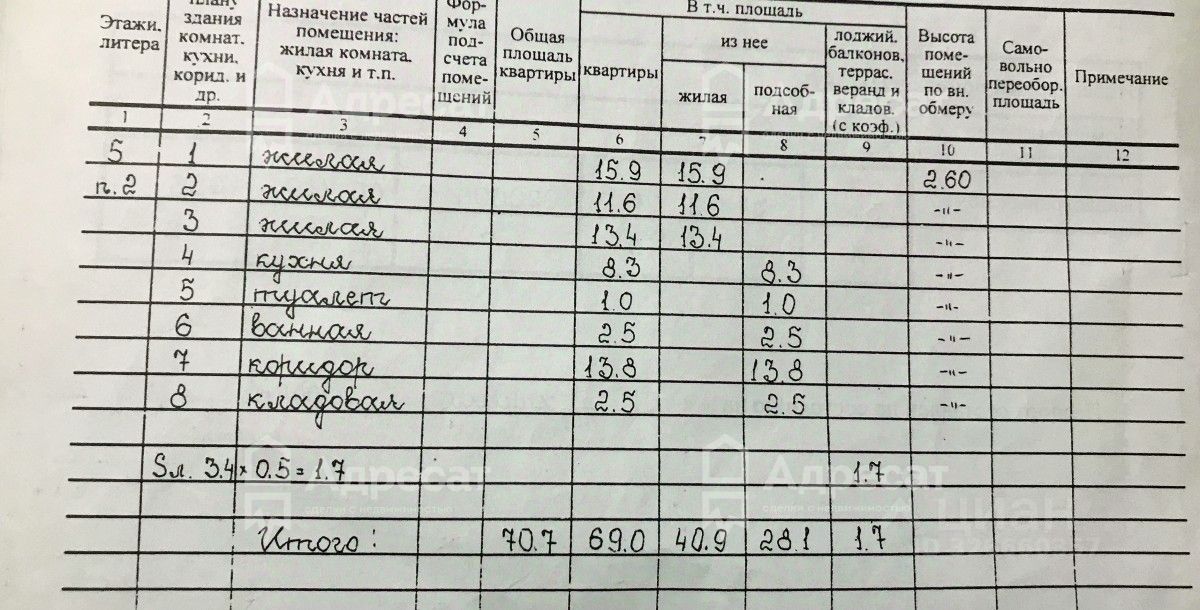 Этажи, литера | плану здания комнат, кухни, корид. и др. | Назначение частей помещения: жилая комната, кухня и т.п. | Формула подсчета помещений | Общая площадь квартиры | В т.ч. площадь квартиры | из нее жилая | из нее подсобная | лоджий, балконов, террас, веранд и кладов. (с коэф.) | Высота помещений по вн. обмеру | Самовольно переобор. площадь | Примечание
1 2 3 4 5 6 7 8 9 10 11 12
5 1 жилая 15.9 15.9 2.60
п.2 2 жилая 11.6 11.6 -"-
3 жилая 13.4 13.4 -"-
4 кухня 8.3 8.3 -"-
5 туалет 1.0 1.0 -"-
6 ванная 2.5 2.5 -"-
7 коридор 13.8 13.8 -"-
8 кладовая 2.5 2.5 -"-
Sл. 3.4 × 0.5 = 1.7 1.7
Итого: 70.7 69.0 40.9 28.1 1.7
Адресат
сделки с недвижимостью
Адресат
Адресат
сделки с недвижимостью
Адресат
сделки с недвижимостью
циан